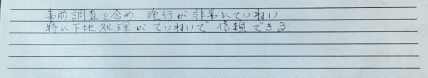 事前調査を含め 施行が非常にていねい
特に下地処理がていねいで信頼できる